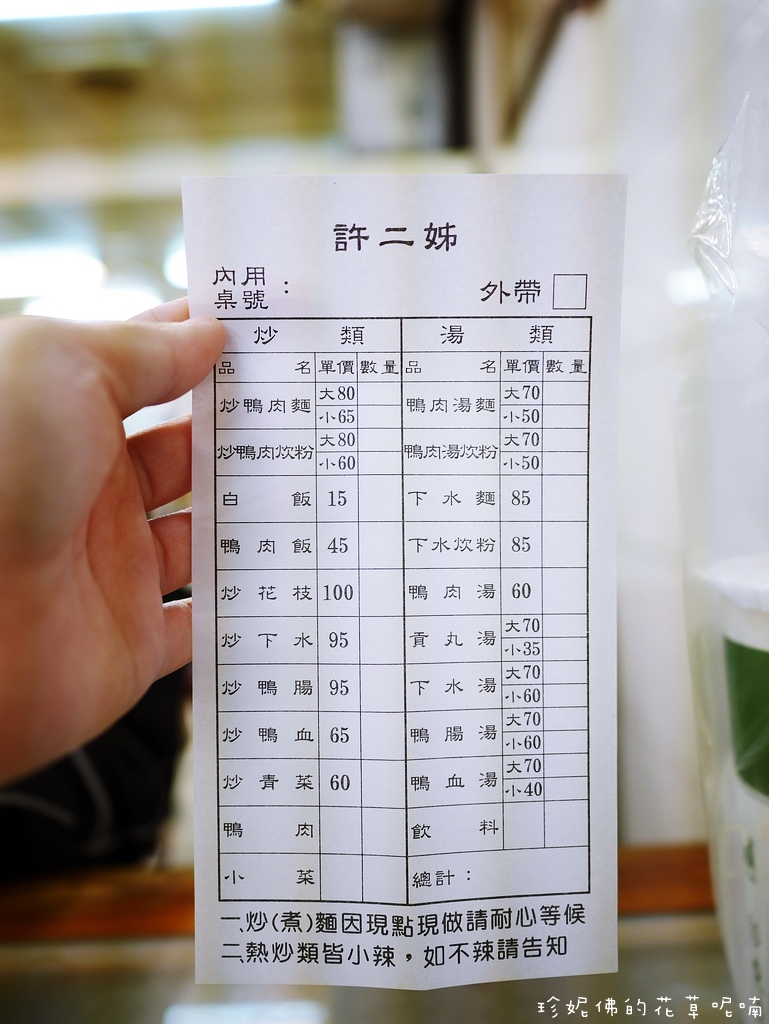 許二姊
內用桌號： 外帶
炒類 湯類
品名 單價 數量 品名 單價 數量
炒鴨肉麵 大80 小65 鴨肉湯麵 大70 小50
炒鴨肉炊粉 大80 小60 鴨肉湯炊粉 大70 小50
白飯 15 下水麵 85
鴨肉飯 45 下水炊粉 85
炒花枝 100 鴨肉湯 60
炒下水 95 貢丸湯 大70 小35
炒鴨腸 95 下水湯 大70 小60
炒鴨血 65 鴨腸湯 大70 小60
炒青菜 60 鴨血湯 大70 小40
鴨肉 飲料
小菜 總計：
一、炒(煮)麵因現點現做請耐心等候
二、熱炒類皆小辣，如不辣請告知
珍妮佛的花草呢喃